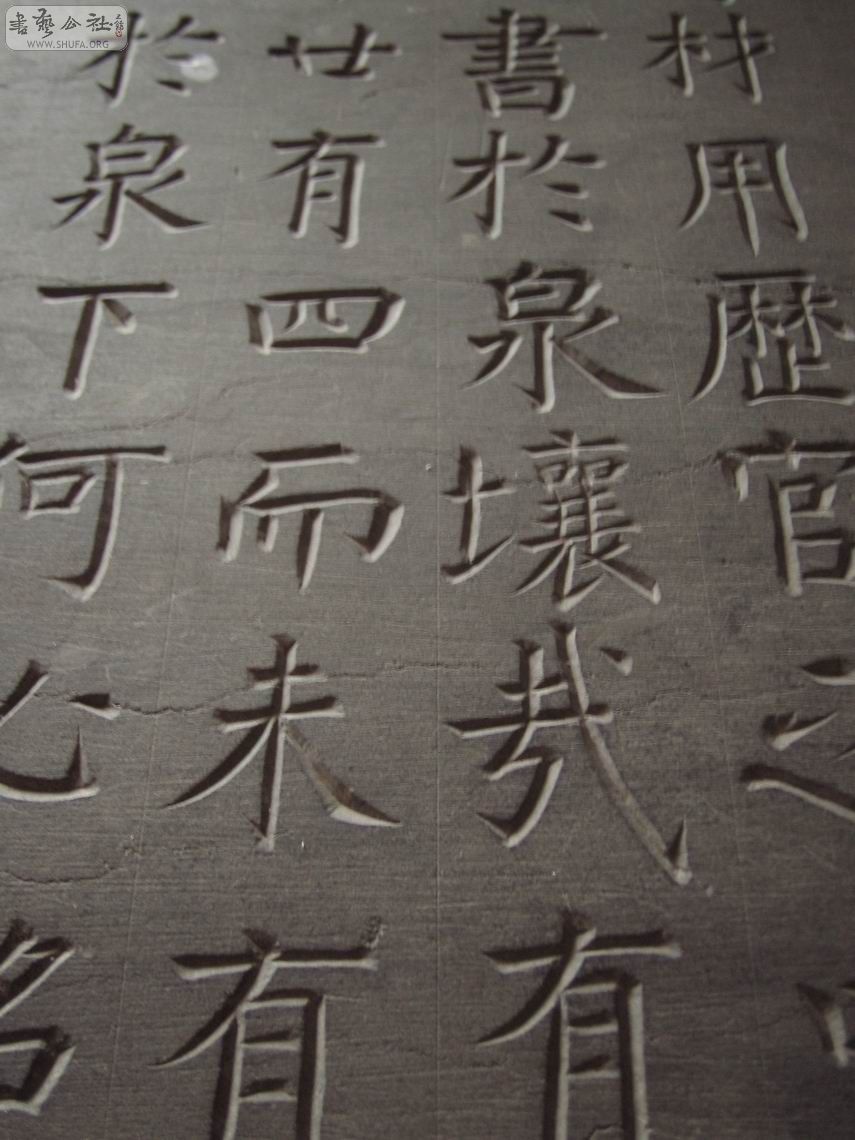 書藝公社
WWW.SHUFA.ORG
材用歴官之
書於泉壤哉有
廿有四而未有
於泉下何心名